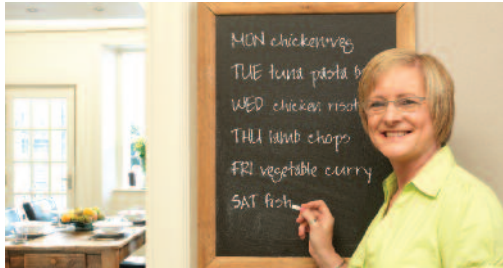 MON chicken veg
TUE tuna pasta
WED chicken
THU lamb chops
FRI vegetable curry
SAT fish